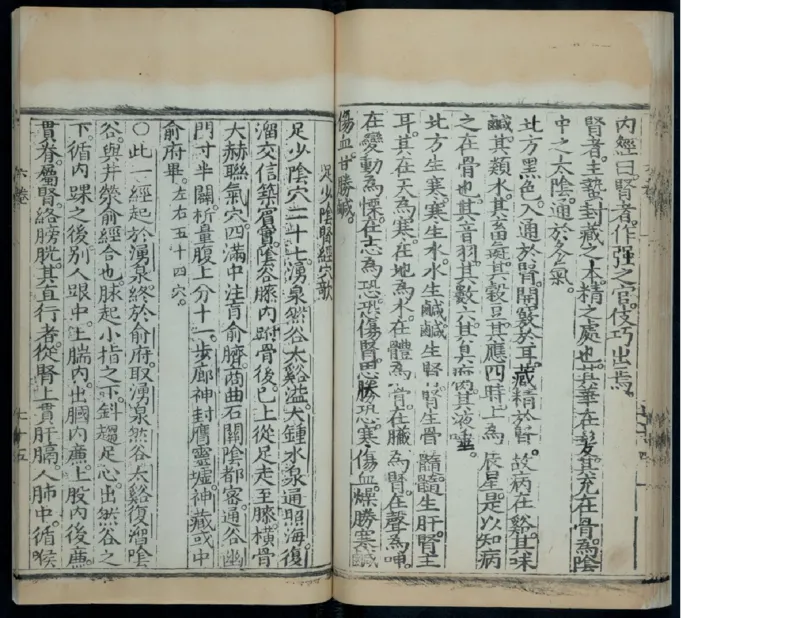 內經曰腎者作强之官伎巧出焉
腎者主蟄封藏之本精之處也其華在髮其充在骨為陰
中之太陰通於冬氣
北方黑色入通於腎開竅於耳藏精於腎故病在谿其味
鹹其類水其畜彘其穀豆其應四時上為辰星是以知病
之在骨也其音羽其數六其臭腐其液唾
北方生寒寒生水水生鹹鹹生腎腎生骨髓髓生肝腎主
耳其在天為寒在地為水在體為骨在臟為腎在聲為呻
在變動為慄在志為恐恐傷腎思勝恐寒傷血燥勝寒鹹
傷血甘勝鹹
足少陰腎經穴歌
足少陰穴二十七湧泉然谷太谿溢大鍾水泉通照海復
溜交信築賓實陰谷膝內跗骨後已上從足走至膝橫骨
大赫聯氣穴四滿中注肓俞臍商曲石關陰都密通谷幽
門寸半闢析量腹上分十一步廊神封膺靈墟神藏彧中
俞府畢左右五十四穴
○此一經起於湧泉終於俞府取湧泉然谷太谿復溜陰
谷與井滎俞經合也脉起小指之下斜趨足心出然谷之
下循內踝之後別人跟中上腨內出膕內廉上股內後廉
貫脊屬腎絡膀胱其直行者從腎上貫肝膈人肺中循喉
六卷
七十五